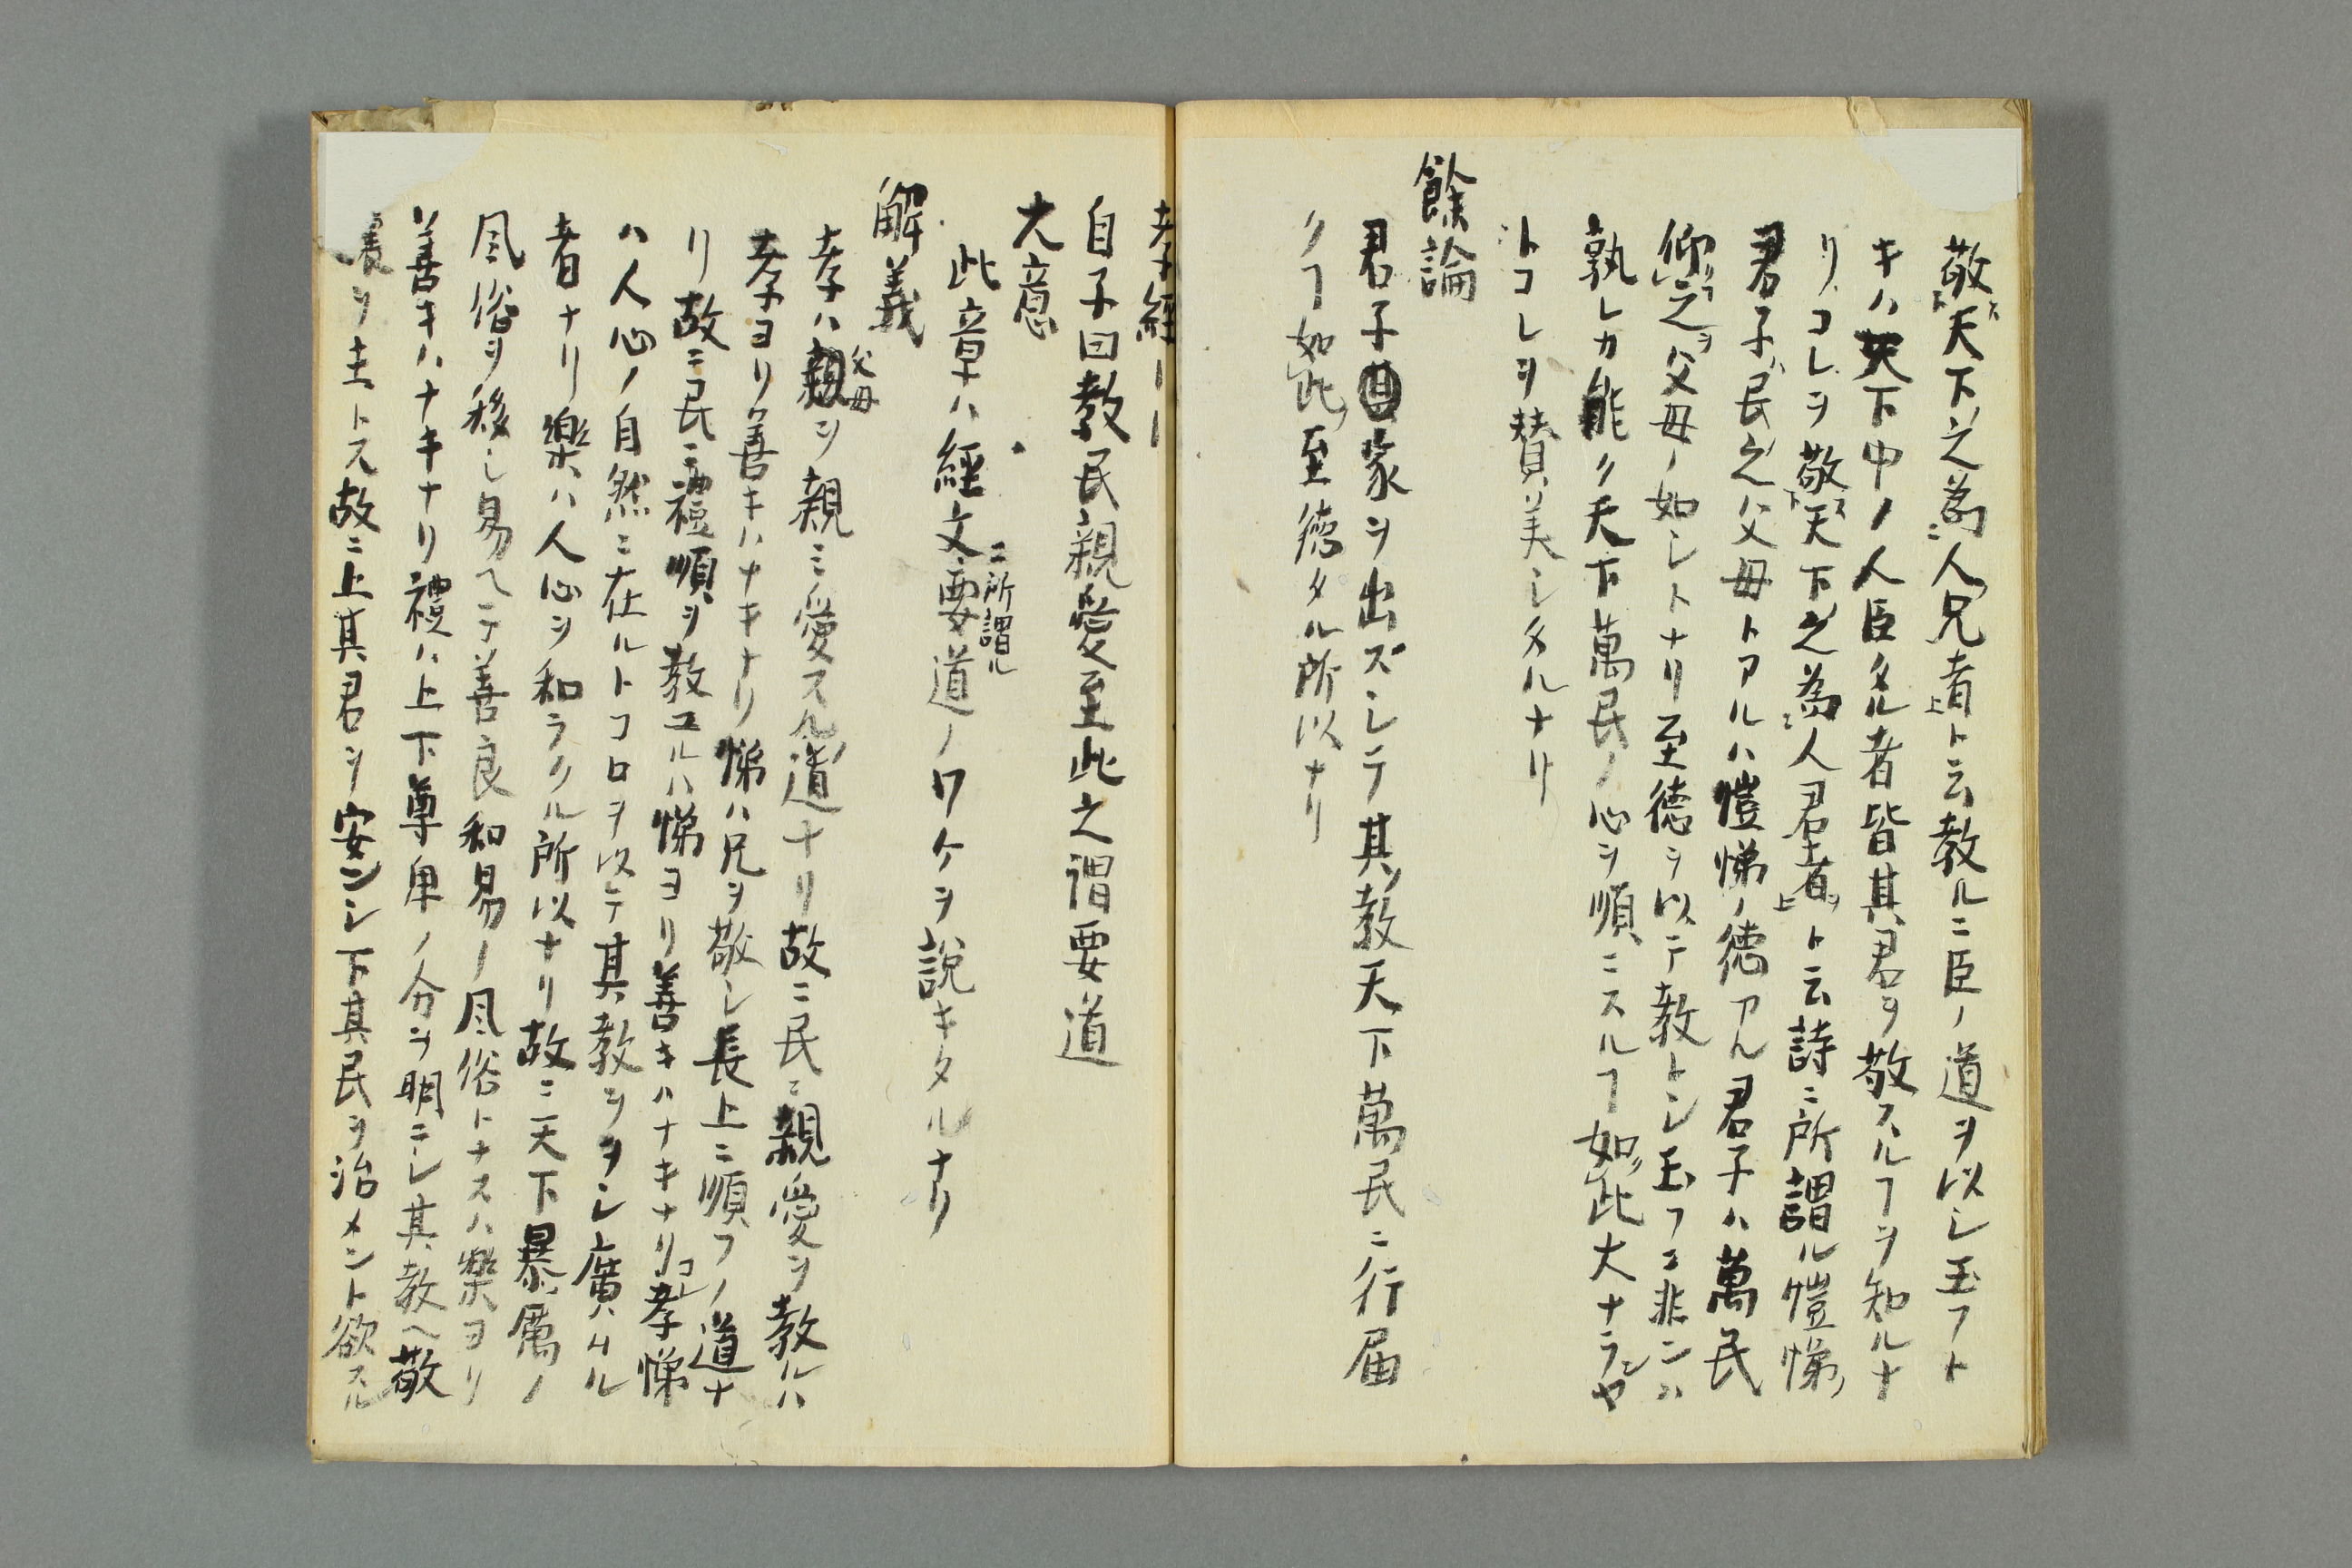 敬天下之為人兄者ト云教ルニ臣ノ道ヲ以シ玉フト
キハ天下中ノ人臣タル者皆其君ヲ敬スルヿヲ知ルナ
リコレヲ敬天下之為人君者ト云詩ニ所謂ル愷悌ノ
君子ハ民之父母トアルハ愷悌ノ徳アル君子ハ萬民
仰之ヲ父母ノ如シトナリ至徳ヲ以テ教トシ玉フニ非ンハ
孰レカ能ク天下萬民ノ心ヲ順ニスルヿ如此大ナランヤ
トコレヲ賛美シタルナリ
餘論
君子家ヲ出ズシテ其教天下萬民ニ行届
クヿ如此至徳タル所以ナリ
孝經
自子曰教民親愛至此之謂要道
大意
此章ハ經文ニ所謂ル要道ノワケヲ說キタルナリ
解義
孝ハ父母ヲ親ミ愛スル道ナリ故ニ民ニ親愛ヲ教ルハ
孝ヨリ善キハナキナリ悌ハ兄ヲ敬シ長上ニ順フノ道ナ
リ故ニ民ニ禮順ヲ教ユルハ悌ヨリ善キハナキナリコレ孝悌
ハ人心ノ自然ニ在ルトコロヲ以テ其教ヲヲシ廣ムル
者ナリ樂ハ人心ヲ和ラクル所以ナリ故ニ天下暴厲ノ
風俗ヲ移シ易ヘテ善良和易ノ風俗トナスハ樂ヨリ
善キハナキナリ禮ハ上下尊卑ノ分ヲ明ニシ其教ヘ敬
ヲ主トス故ニ上其君ヲ安ンシ下其民ヲ治メント欲スル